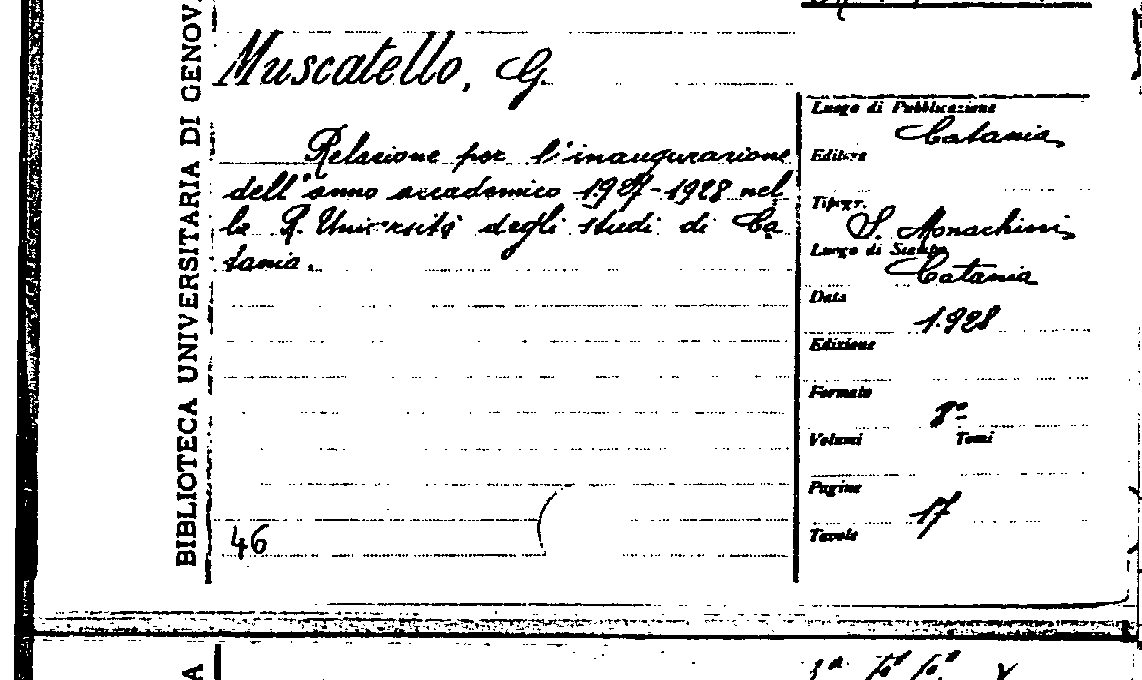 BIBLIOTECA UNIVERSITARIA DI GENOV
Muscatello, G.
Relazione per l'inaugurazione
dell'anno accademico 1927-1928 nel
la R. Università degli studi di Ca
tania.
46
Luogo di Pubblicazione
Catania
Editore
Tipogr.
S. Monachini
Luogo di Stampa
Catania
Data
1928
Edizione
Formato
8°
Volumi Tomi
Pagine
17
Tavole
A